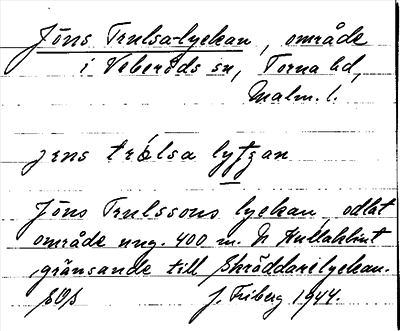 Jöns Trulsa-lyckan, område
i Veberöds sn, Torna hd,
Malm. l.
jens trólsa lyţgan
Jöns Trulssons lyckan, odlat
område ung. 400 m. N Kullaklint
gränsande till Skräddarelyckan.
J. Friberg 1944.